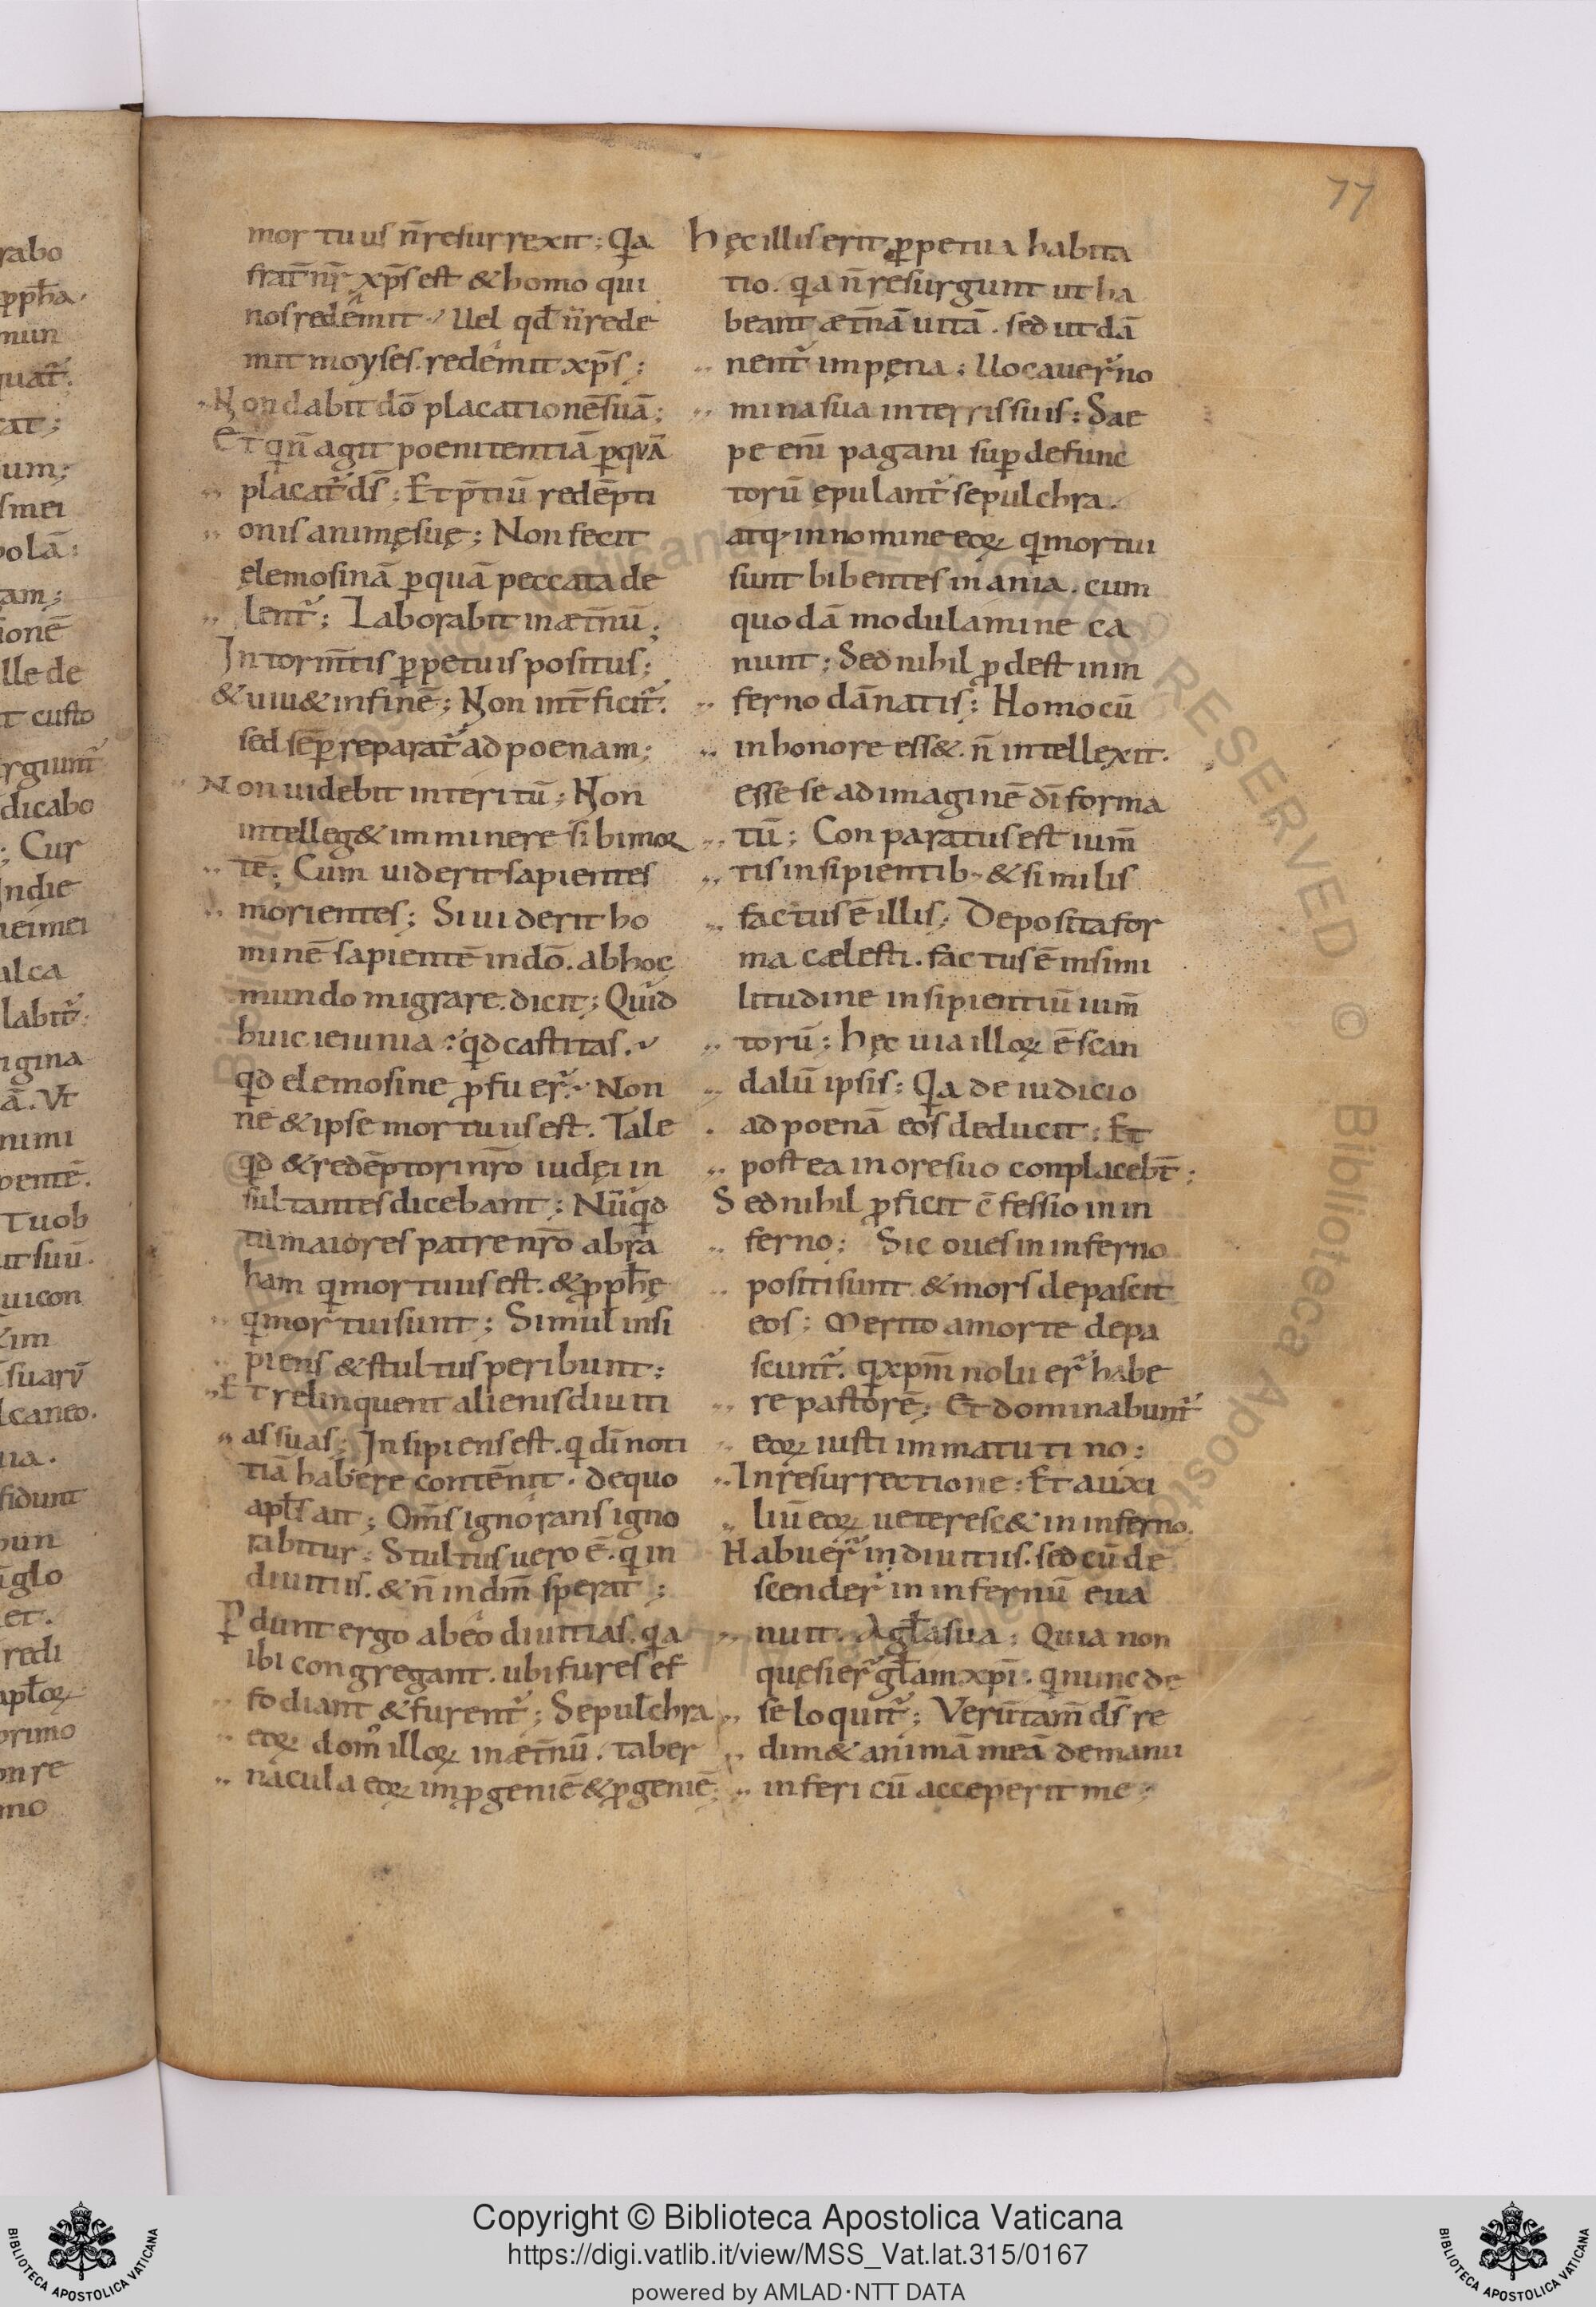 77
mortuus n̄ resurrexit; Qa
frat̄ nr̄ xp̄s est & homo qui
nos redemit; Uel qd̄ n̄ rede
mit moyses. redemit xp̄s;
Non dabit dō placationē suā;
Et q n̄ agit poenitentiā ꝑ quā
placat̃ ds̄; Et p̄tiū redēpti
onis animę suę; Non fecit
elemosinā ꝑ quā peccata de
lent̃; Laborabit in æt̄nū;
In torm̄tis ꝑpetuis positus;
& uiu& in finē; Non int̄ficit̃.
sed sēꝑ reparat̃ ad poenam;
Non uidebit interitū; Non
intelleg& imminere sibi mor
tē; Cum uiderit sapientes
morientes; Si uiderit ho
minē sapientē in dō. ab hoc
mundo migrare. dicit; Quid
huic ieiunia. qd castitas.
qd elemosine ꝓfuer̃. Non
ne & ipse mortuus est. Tale
qd & redēptori nr̄o iudęi in
sultantes dicebant; Nūqd
tu maior es patre nr̄o abra
ham q mortuus est. & ꝓph̄ę
q mortui sunt; Simul insi
piens & stultus peribunt;
Et relinquent alienis diuiti
as suas; Insipiens est. q dī noti
tiā habere contēnit. de quo
apl̄s ait; Om̄s ignorans igno
rabitur; Stultus uero ē. q in
diuitiis. & n̄ in dn̄m sperat;
Ꝑdunt ergo ab eo diuitias. qa
ibi congregant. ubi fures ef
fodiant & furent̃; Sepulchra
eoꝝ dom᾽ illoꝝ in æt̄nū. taber
nacula eoꝝ in ꝓgeniē & ꝓgeniē;
Hęc illis erit ꝑpetua habita
tio. qa n̄ resurgunt ut ha
beant æt̄nā uitā. sed ut dā
nent̃ in pęna; Uocauer̃ no
mina sua in terris suis; Sae
pe eni pagani suꝑ defunc
torū epulant̃ sepulchra.
atq; in nomine eoꝝ q mortui
sunt bibentes inania. cum
quodā modulamine ca
nunt; Sed nihil ꝓdest in in
ferno dānatis; Homo cū
in honore ess&. n̄ intellexit.
esse se ad imaginē dī forma
tū; Conparatus est ium̄
tis insipientib; & similis
factus ē illis; Deposita for
ma cælesti. factus ē in simi
litudine insipientiū ium̄
torū; Hęc uia illoꝝ ē scan
dalū ipsis; Qa de iudicio
ad poenā eos deducit; Et
postea in ore suo conplacebt̄;
Sed nihil ꝓficit c̄fessio in in
ferno; Sic oues in inferno
positi sunt & mors depascit
eos; Merito a morte depa
scunt̃. q xpm̄ noluer̃ habe
re pastorē; Et dominabunt̃
eoꝝ iusti in matutino;
In resurrectione; Et auxi
liū eoꝝ ueteresc& in inferno.
Habuer̃ in diuitiis. sed cū de
scender̃ in infernū eua
nuit. A gl̄a sua; Quia non
quęsier̃ gl̄am xpī. q nunc de
se loquit̃; Verūtam̄ ds̄ re
dim& animā meā de manu
inferi cū acceperit me;
Copyright © Biblioteca Apostolica Vaticana
https://digi.vatlib.it/view/MSS_Vat.lat.315/0167
powered by AMLAD·NTT DATA